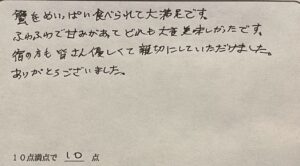 蟹をめいっぱい食べられて大満足です。
ふわふわで甘みがあって どれも大変美味しかったです。
宿の方も 皆さん優しくて 親切にしていただけました。
ありがとうございました。
10点満点で 10 点